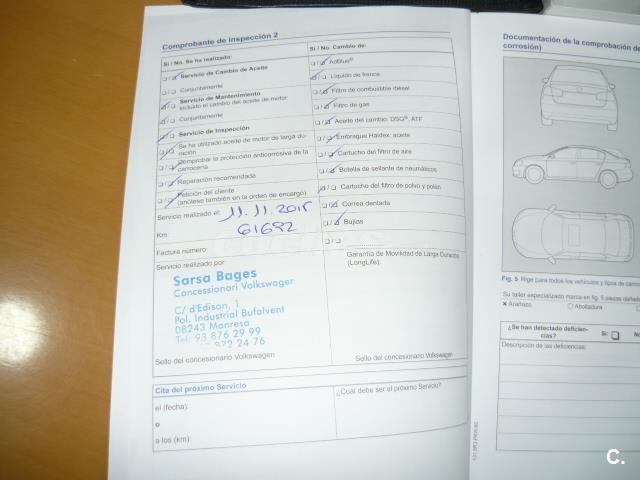 Comprobante de inspección 2
Sí / No. Se ha realizado:
Servicio de Cambio de Aceite
Conjuntamente
Servicio de Mantenimiento
incluido el cambio de aceite de motor
Conjuntamente
Servicio de Inspección
Se ha utilizado aceite de motor de larga du-
ración
Comprobar la protección anticorrosiva de la
carrocería
Reparación recomendada
Petición del cliente
(anótese también en la orden de encargo)
Servicio realizado el: 11.11.2015
Km: 61692
Factura número:
Servicio realizado por:
Sarsa Bages
Concessionari Volkswager
C/ d'Edison, 1
Pol. Industrial Bufalvent
08243 Manresa
Tel: 93 876 29 99
872 24 76
Sello del concesionario Volkswagen
Sí / No. Cambio de:
AdBlue®
Líquido de frenos
Filtro de combustible diésel
Filtro de gas
Aceite del cambio: DSG®, ATF
Embrague Haldex: aceite
Cartucho del filtro de aire
Botella de sellante de neumáticos
Cartucho del filtro de polvo y polen
Correa dentada
Bujías
Garantía de Movilidad de Larga Duración
(LongLife):
Sello del concesionario Volkswagen
Cita del próximo Servicio
el (fecha):
o
a los (km):
¿Cuál debe ser el próximo Servicio?
Documentación de la comprobación de
corrosión)
Fig. 5 Rige para todos los vehículos y tipos de carro
Su taller especializado marca en fig. 5 piezas dañad
x Arañazo
Abolladura
¿Se han detectado deficien-
cias?
Sí:
No
Descripción de las deficiencias:
C.